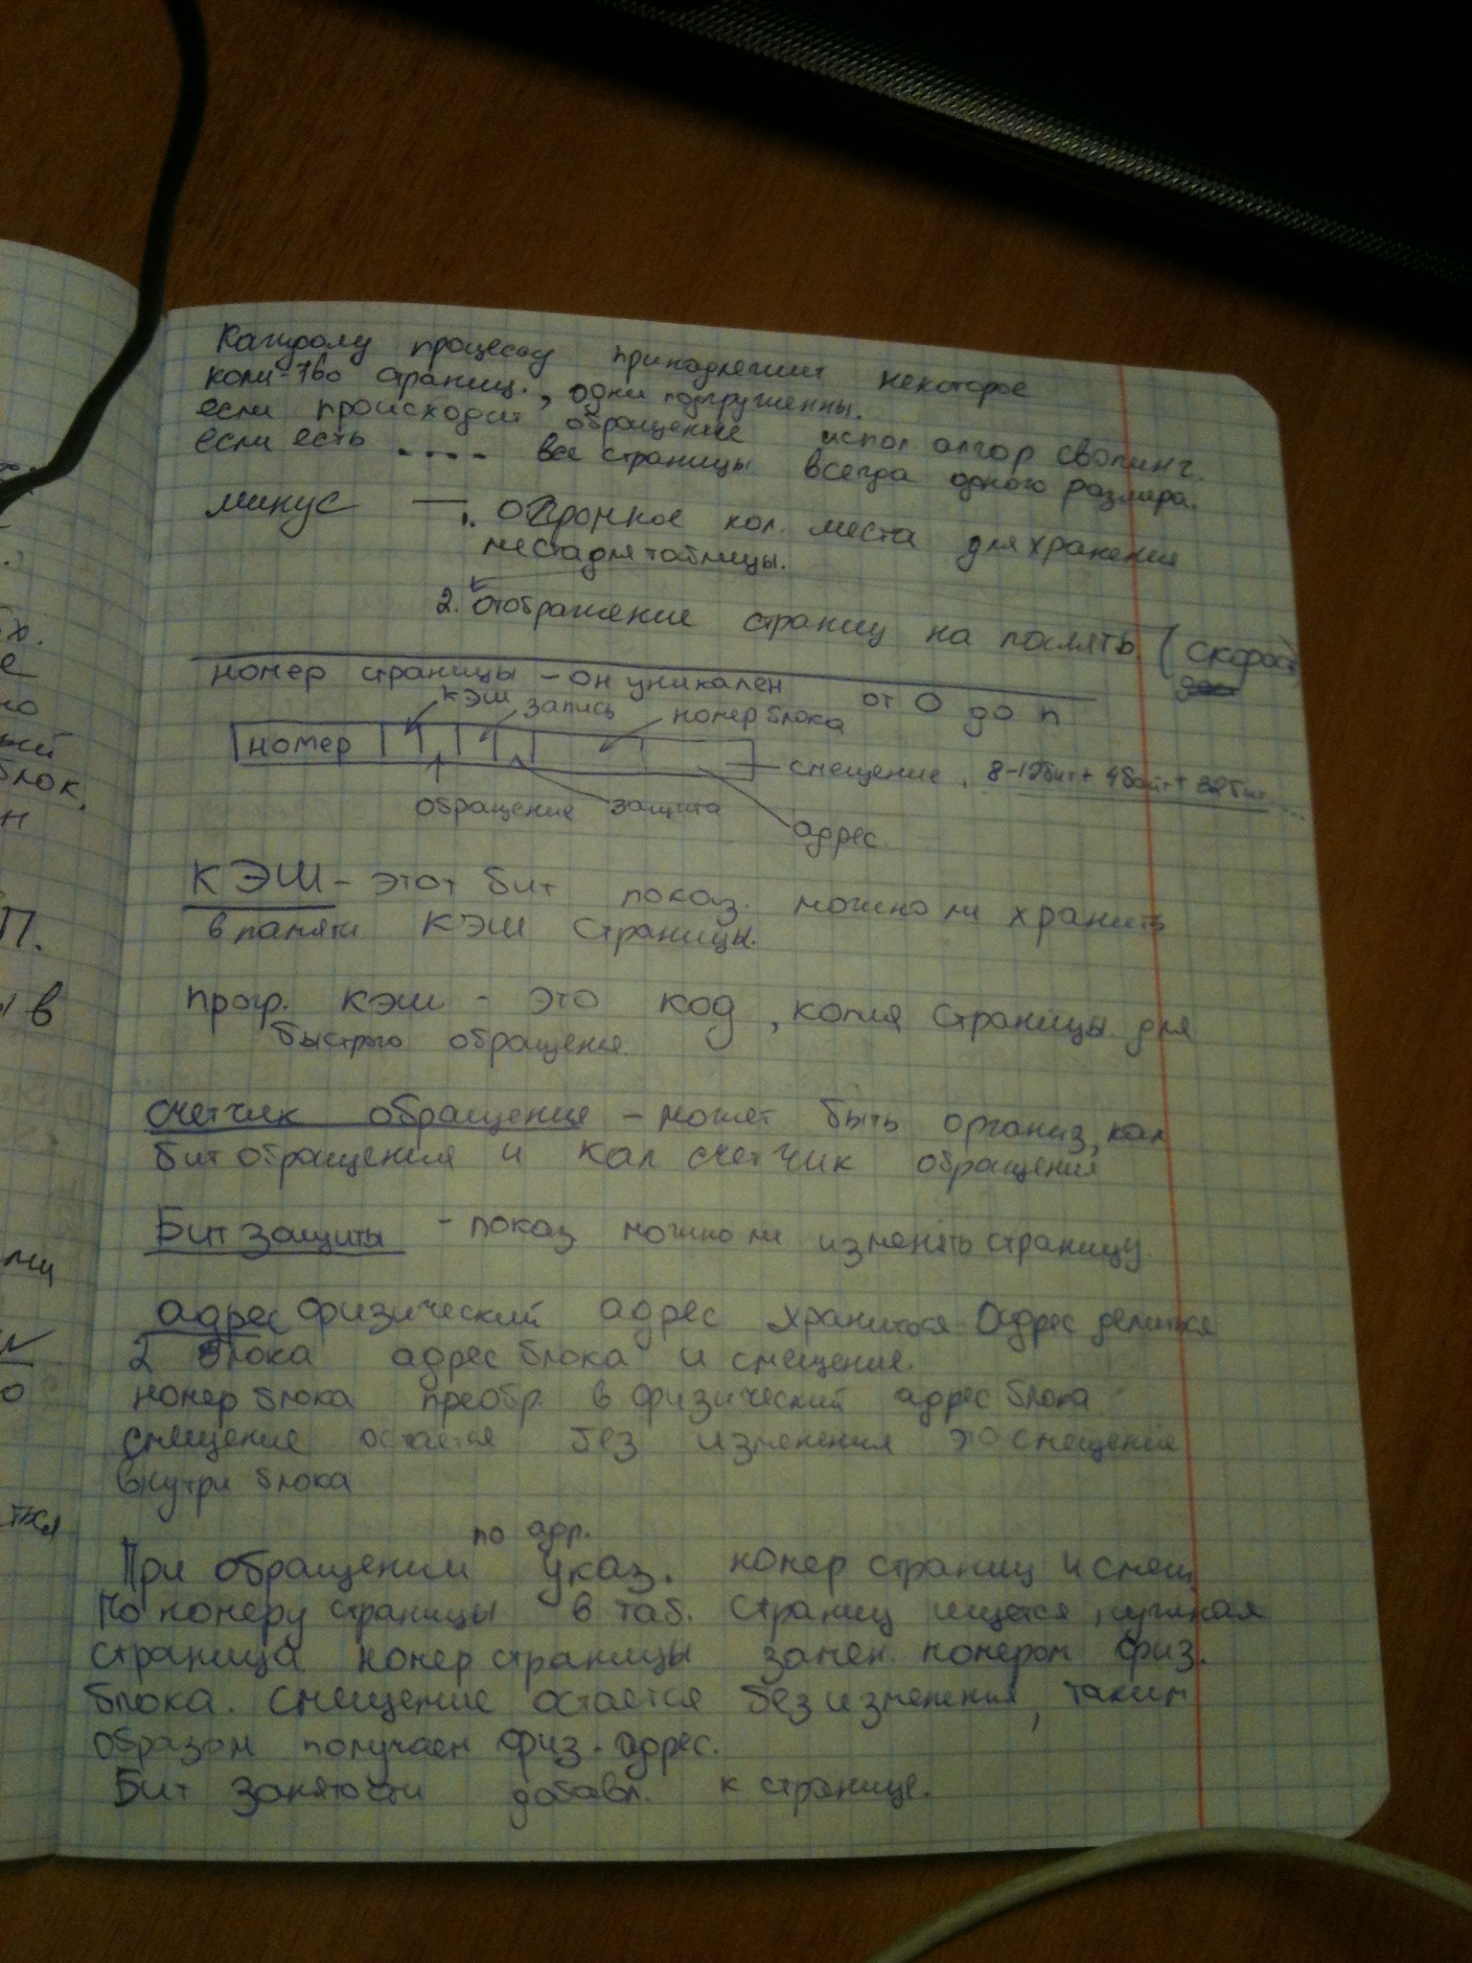 Каждому процессу принадлежит некоторое
коли-тво страниц., одни подгруженны.
если происходит обращение испол алгор свопинг.
если есть .... все страницы всегда одного размера.
минус — 1. огромное кол. места для хранения
места для таблицы.
2. отображение страниц на память. (скорость
номер страницы – он уникален от 0 до n
кэш запись номер блока
номер
смещение, 8-12бит + 4байт + 32бит ...
обращение защита адрес
КЭШ – этот бит показ. можно ли хранить
в памяти КЭШ страницы.
прогр. кэш - это код, копия страницы для
быстрого обращения.
счетчик обращения – может быть организ, как
бит обращения и как счетчик обращения
Бит защиты - показ можно ли изменять страницу.
адрес физический адрес храниться Адрес делится
2 блока адрес блока и смещение.
номер блока преобр. в физический адрес блока
смещение остается без изменения это смещение
внутри блока
по адр.
При обращении указ. номер страниц и смещ
По номеру страницы в таб. страниц ищется, нужная
страница. номер страницы замен. номером физ.
блока. смещение остается без изменения, таким
образом получаем физ. адрес.
Бит занятости добавл. к странице.